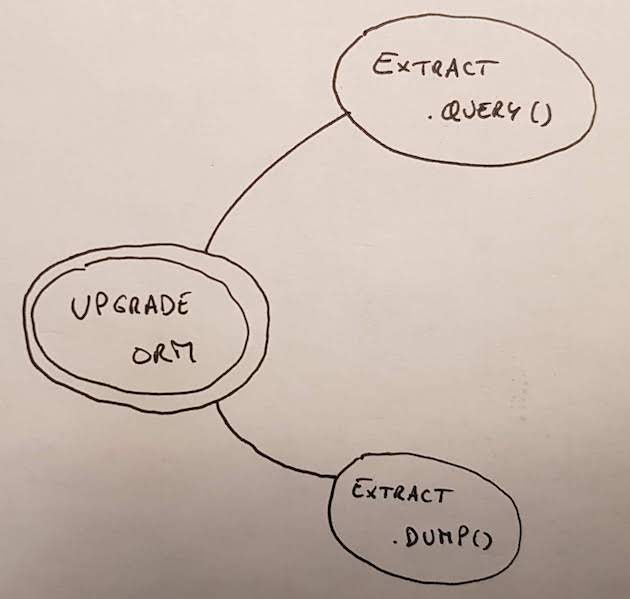 EXTRACT
.QUERY()
UPGRADE
ORM
EXTRACT
.DUMP()